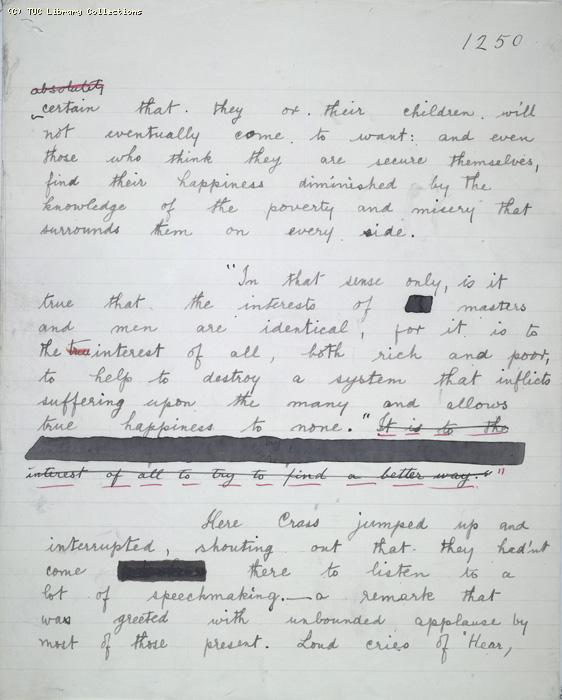 (C) TUC Library Collections
1250
absolutely
certain that they or their children will
not eventually come to want: and even
those who think they are secure themselves,
find their happiness diminished by the
knowledge of the poverty and misery that
surrounds them on every side.
"In that sense only, is it
true that the interests of masters
and men are identical, for it is to
the true interest of all, both rich and poor,
to help to destroy a system that inflicts
suffering upon the many and allows
true happiness to none." It is to the
interest of all to try to find a better way." "
Here Crass jumped up and
interrupted, shouting out that they had'nt
come there to listen to a
lot of speechmaking.—a remark that
was greeted with unbounded applause by
most of those present. Loud cries of "Hear,